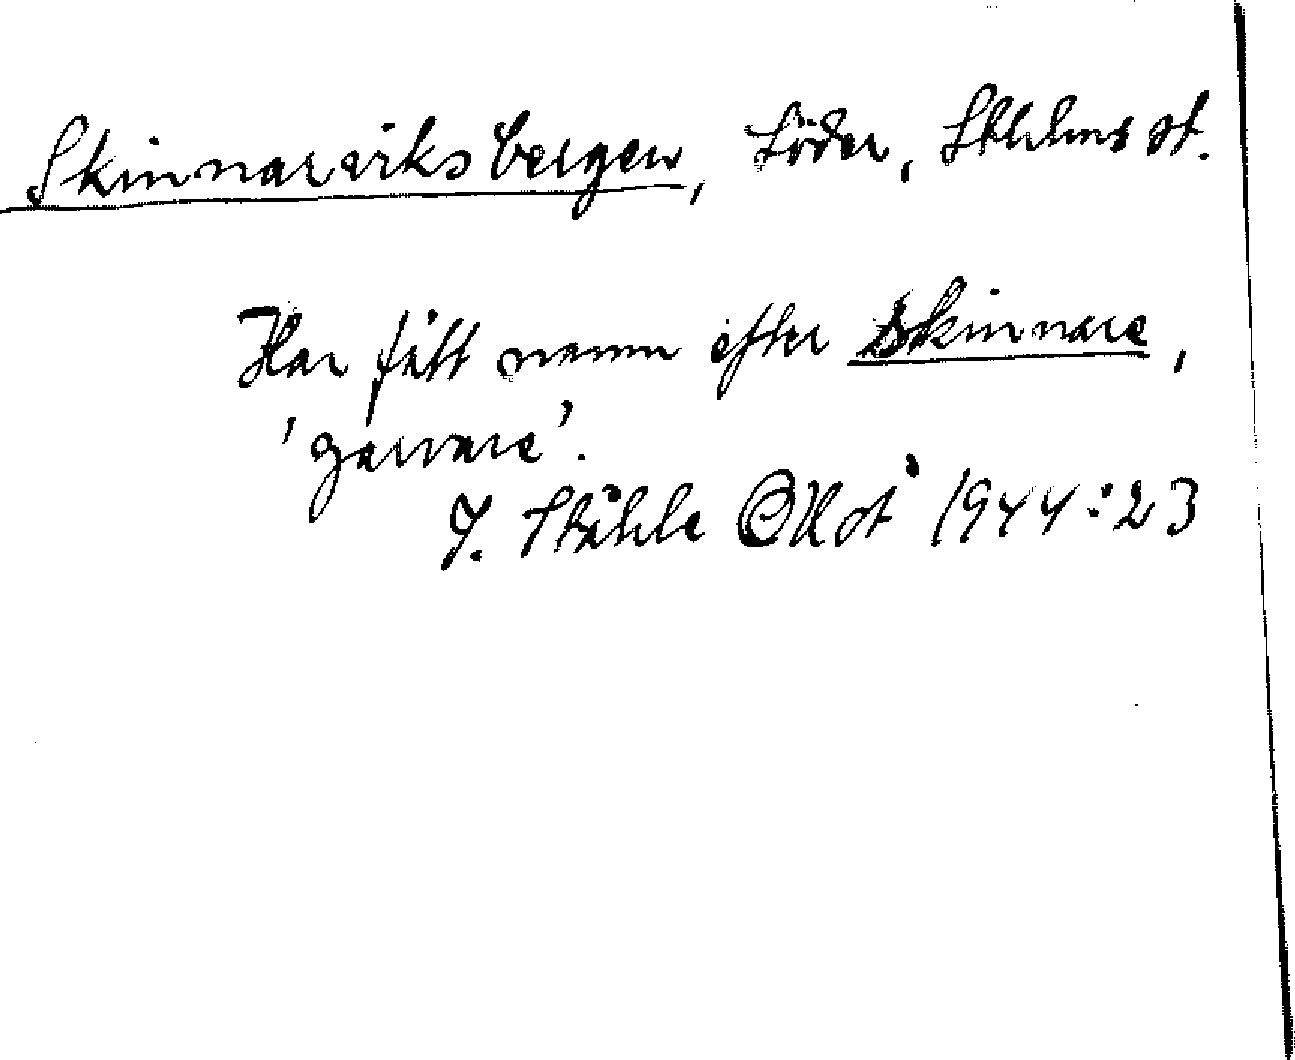 Skinnarviksbergen, Söder, Sthlms st.
Har fått namn efter skinnare,
'garvare'.
I. Ståhle 1944:23